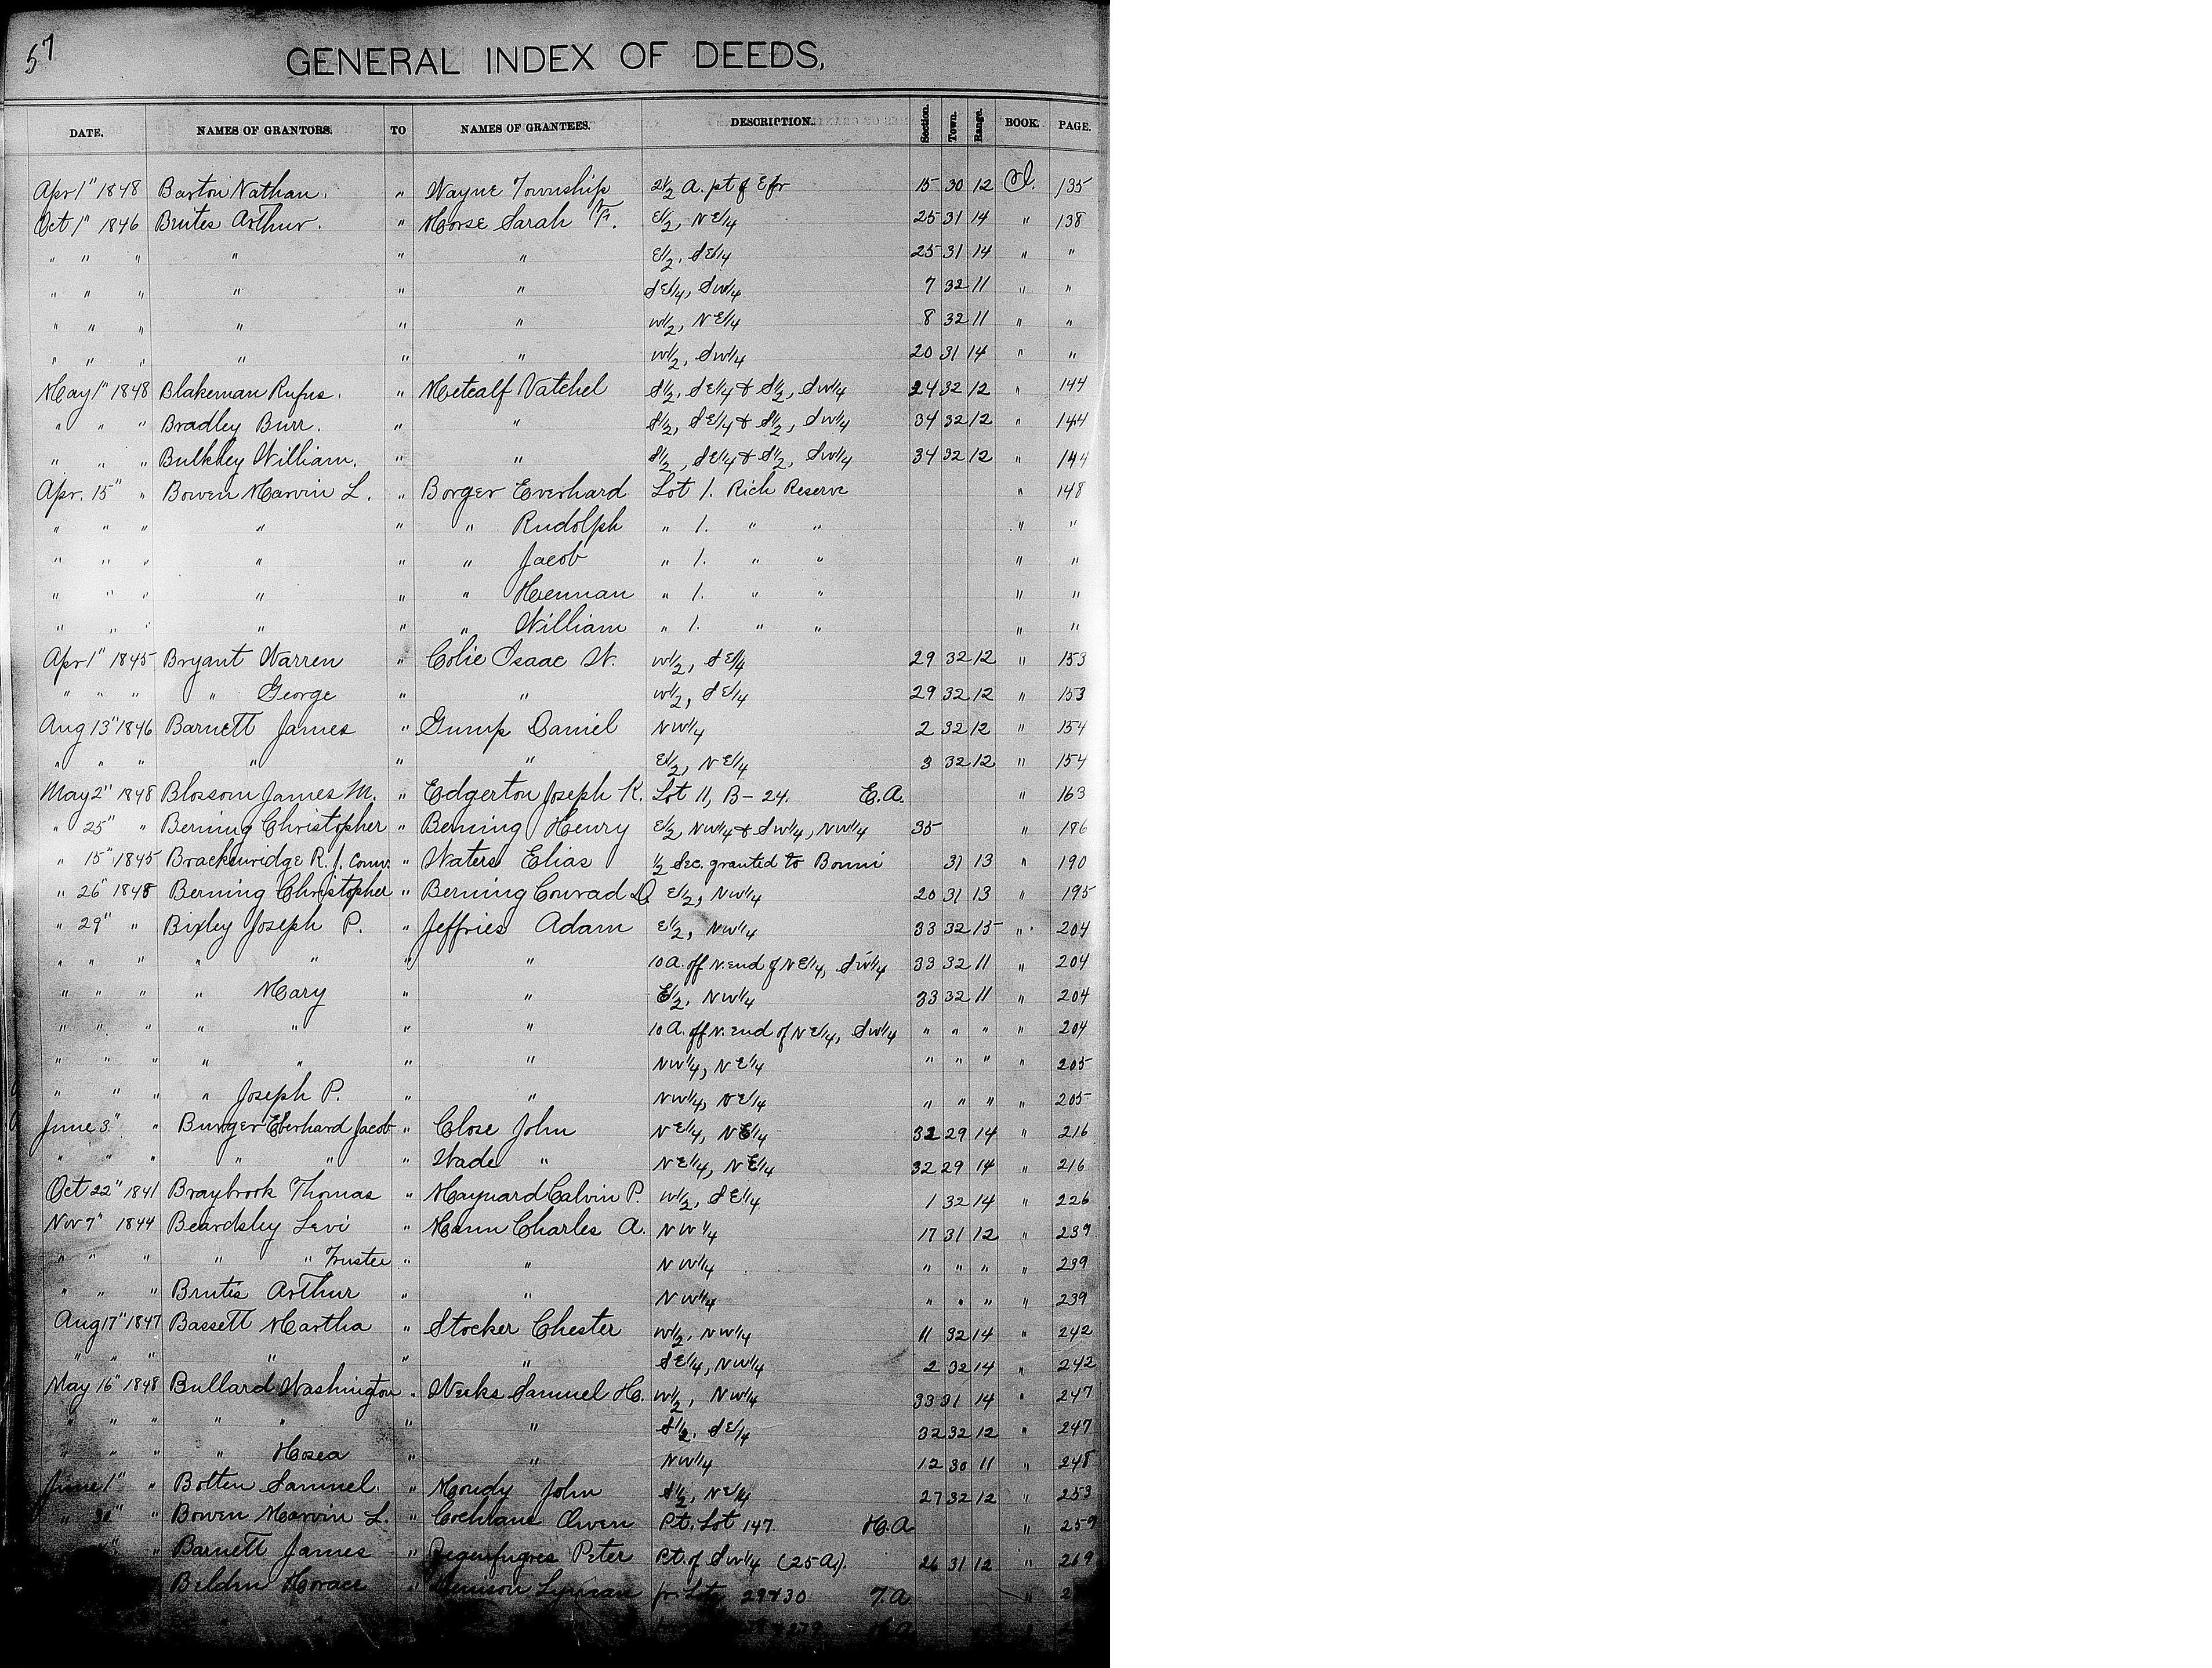 57
GENERAL INDEX OF DEEDS,
DATE. NAMES OF GRANTORS. TO NAMES OF GRANTEES. DESCRIPTION. Section. Town. Range. BOOK. PAGE.
Apr 1" 1848 Barton Nathan. " Wayne Township 2½ A. pt of E fr 15 30 12 135
Oct 1" 1846 Brutes Arthur. " Morse Sarah F. E1/2, NE1/4 25 31 14 " 138
" " " " " " E1/2, SE1/4 25 31 14 " "
" " " " " " SE1/4, SW1/4 7 32 11 " "
" " " " " " W1/2, NE1/4 8 32 11 " "
" " " " " " W1/2, SW1/4 20 31 14 " "
May 1" 1848 Blakeman Rufus. " Metcalf Vatchel S1/2, SE1/4 & S1/2, SW1/4 24 32 12 " 144
" " " Bradley Burr. " " S1/2, SE1/4 & S1/2, SW1/4 34 32 12 " 144
" " " Bulkley William. " " S1/2, SE1/4 & S1/2, SW1/4 34 32 12 " 144
Apr. 15" " Bowen Marvin L. " Borger Everhard Lot 1. Rich Reserve " 148
" " " " " " Rudolph " 1. " " " "
" " " " " " Jacob " 1. " " " "
" " " " " " Herman " 1. " " " "
" " " " " " William " 1. " " " "
Apr 1" 1845 Bryant Warren " Colie Isaac W. W1/2, SE1/4 29 32 12 " 153
" " " " George " " W1/2, SE1/4 29 32 12 " 153
Aug 13" 1846 Barnett James " Gump Daniel NW1/4 2 32 12 " 154
" " " " " " E1/2, NE1/4 3 32 12 " 154
May 2" 1848 Blossom James M. " Edgerton Joseph K. Lot 11, B-24. E.A. " 163
" 25" " Berning Christopher " Berning Henry E1/2, NW1/4 & SW1/4, NW1/4 35 " 186
" 15" 1845 Brackenridge R. J. Comr. " Waters Elias ½ Sec. granted to Bonni 31 13 " 190
" 26" 1848 Berning Christopher " Berning Conrad D. E1/2, NW1/4 20 31 13 " 195
" 29" " Bixley Joseph P. " Jeffries Adam E1/2, NW1/4 33 32 15 " 204
" " " " " " " 10 A. off N. end of NE1/4, SW1/4 33 32 11 " 204
" " " " Mary " " E1/2, NW1/4 33 32 11 " 204
" " " " " " " 10 A. off N. end of NE1/4, SW1/4 " " " " 204
" " " " " " " NW1/4, NE1/4 " " " " 205
" " " " Joseph P. " " NW1/4, NE1/4 " " " " 205
June 3" " Burger Eberhard Jacob " Close John NE1/4, NE1/4 32 29 14 " 216
" " " " " " Wade " NE1/4, NE1/4 32 29 14 " 216
Oct 22" 1841 Braybrook Thomas " Maynard Calvin P. W1/2, SE1/4 1 32 14 " 226
Nov 7" 1844 Beardsley Levi " Mann Charles A. NW1/4 17 31 12 " 239
" " " " " Trustee " " NW1/4 " " " " 239
" " " Brutes Arthur " " NW1/4 " " " " 239
Aug 17" 1847 Bassett Martha " Stocker Chester W1/2, NW1/4 11 32 14 " 242
" " " " " " SE1/4, NW1/4 2 32 14 " 242
May 16" 1848 Bullard Washington " Weeks Samuel H. W1/2, NW1/4 33 31 14 " 247
" " " " " " " S1/2, SE1/4 32 32 12 " 247
" " " " Hosea " " NW1/4 12 30 11 " 248
June 1" " Bolten Samuel. " Moudy John S1/2, NE1/4 27 32 12 " 253
" " Bowen Marvin L. " Cochrane Owen Pt. Lot 147. H.A. " 259
" " Barnett James " Peter Pt. of SW1/4 (25 A). 26 31 12 " 269
Horace " Lyman 29 & 30 7.A "